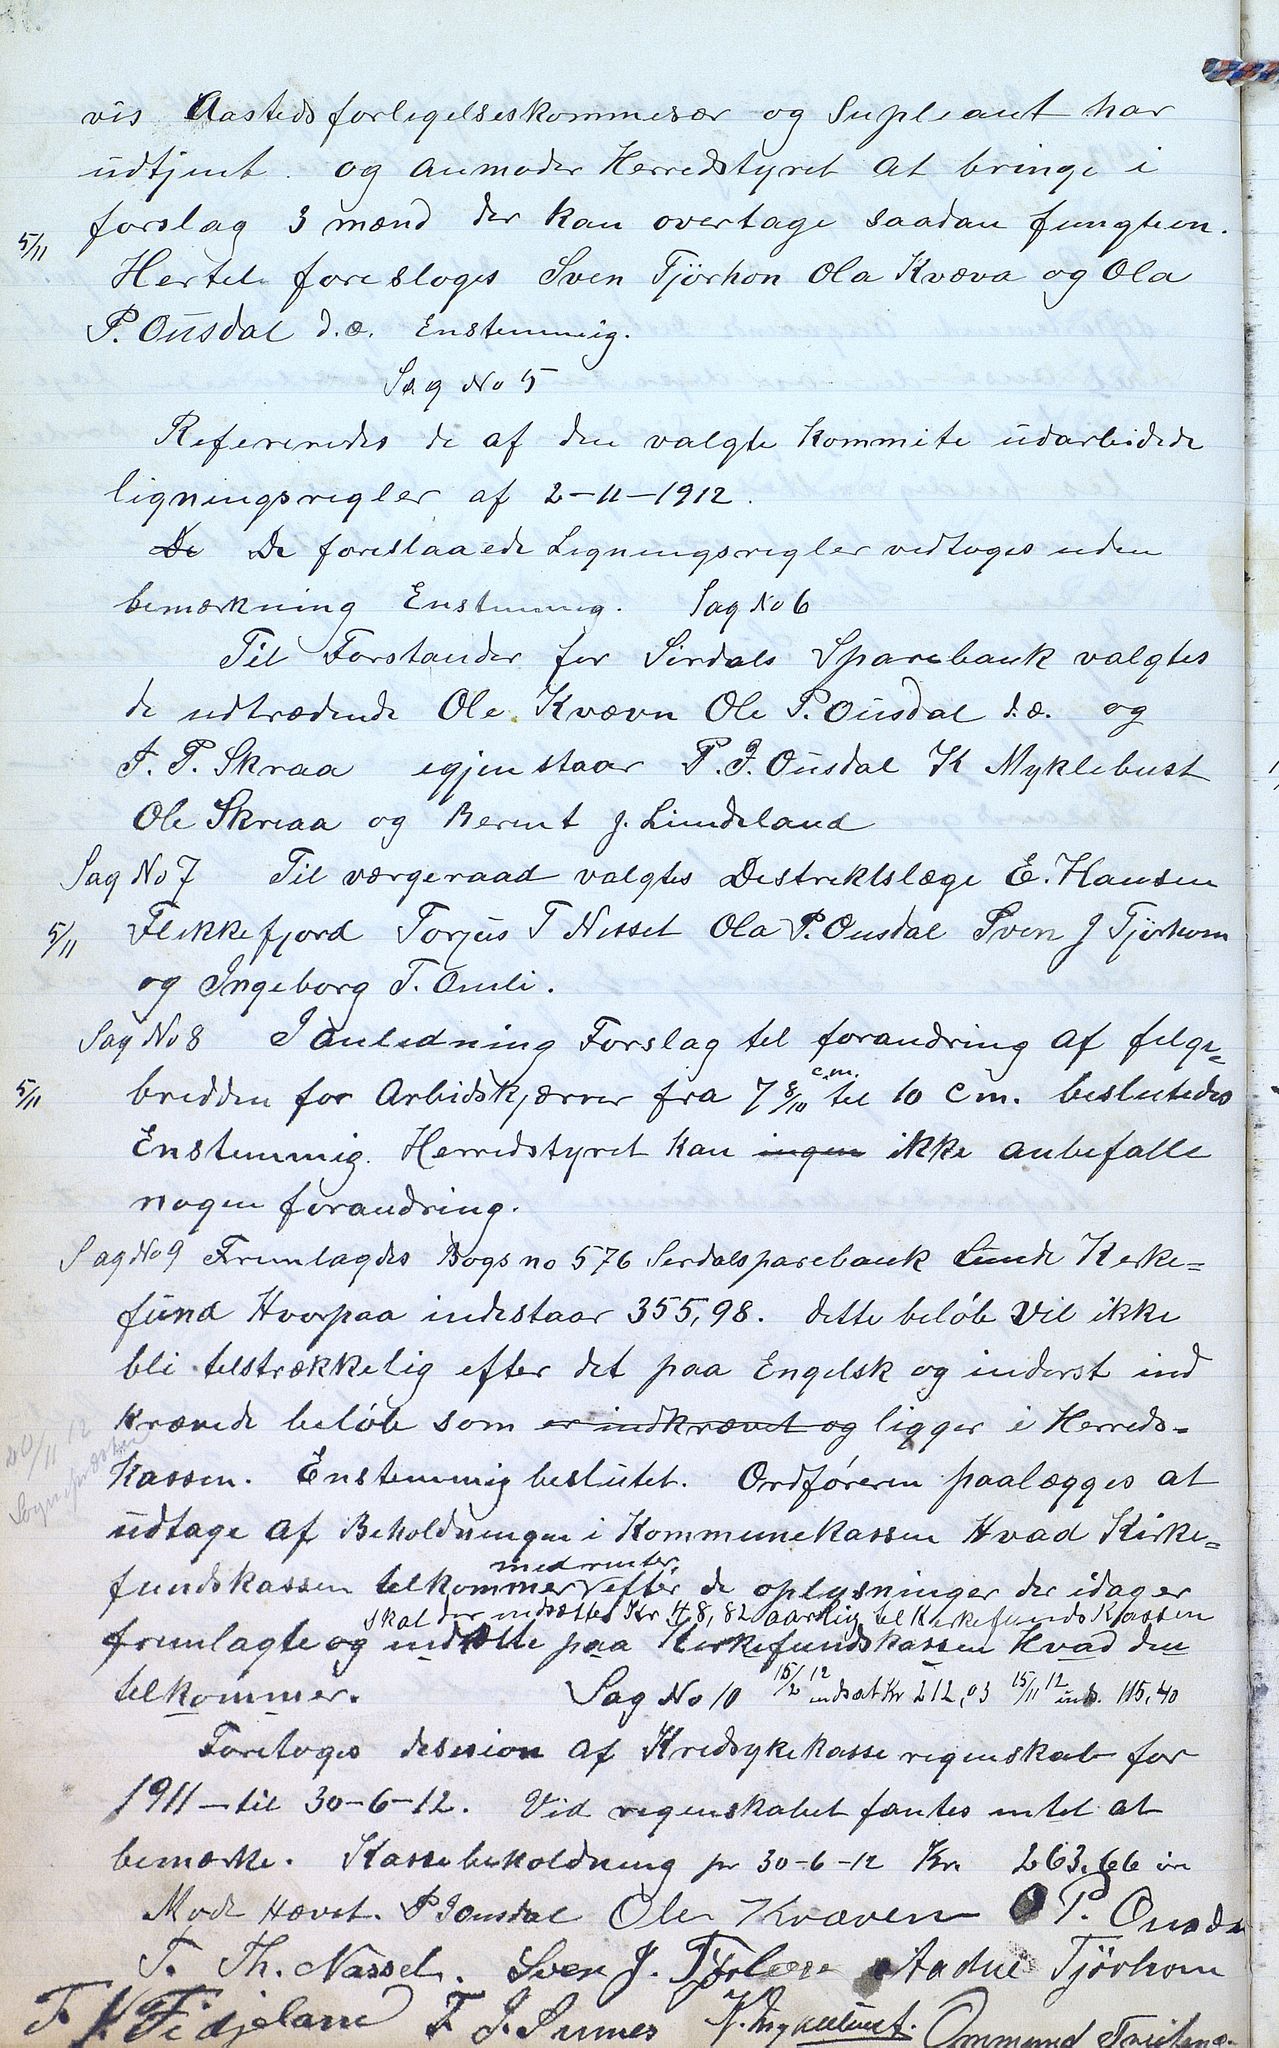 vis Aastedsforligelseskommesær og Supleant har
udtjent. og anmoder Herredstyret at bringe i
forslag 3 mænd der kan overtage saadan fungtion.
5/11
Hertil foresloges Sven Tjörhon Ola Kvæva og Ola
P. Ousdal d.æ. Enstemmig.
Sag No 5
Refereredes de af den valgte Kommite udarbidede
ligningsregler af 2-11-1912.
De De foreslaaede Ligningsregler vedtoges uden
bemærkning Enstemmig. Sag No 6
Til Forstander for Sirdals Sparebank valgtes
de udtrædende Ole Kvævn Ole P. Ousdal d.æ. og
T. P. Skraa egjenstaar P. J. Ousdal K Myklebust
Ole Skreaa og Bernt J. Lindeland
Sag No 7 Til værgeraad valgtes Destrektslæge E. Hansen
5/11 Flekkefjord Torjus T Nesset Ola P. Ousdal Sven J Tjörhom
og Ingeborg T. Omli.
Sag No 8 I anledning Forslag til forandring af felge=
5/11 bredden for Arbidskjærrer fra 7 8/10 c.m. til 10 cm. beslutedes
Enstemmig. Herredstyret kan ingen ikke anbefalle
nogen forandring.
Sag No 9 Fremlagdes Bogs no 576 Serdalsparebank Lunde Kerke=
fund Hvorpaa indestaar 355,98. dette beløb vil ikke
bli telstrækkelig efter det paa Engelsk og inderst ind
krævede beløb som er indkrævet og ligger i Herreds=
20/11 12
Sognepræsten
kassen. Enstemmig beslutet. Ordføreren paalægges at
udtage af Beholdningen i Kommunekassen Hvad Kirke=
med renter
fundskassen telkommer efter de oplysninger der idag er
skal der indsættes Kr 48,82 aarlig tel Kirkefundskassen
fremlagte og indsætte paa Kirkefundskassen Hvad den
telkommer. Sag No 10 15/2 12 indsæt Kr 212,03 15/11 12 inds. 115,40
Foretoges desesion af Kredsykekasse regenskab for
1911 - til 30-6-12. Vid regenskabet fantes intet at
bemærke. Kassebeholdning pr 30-6-12 Kr. 263.66 øre
Møde Hævet. P Jousdal Ole Kvæven O P. Ousdal
T. Th. Nesset. Sven J. Tjørhom Aadne Tjörhom
T. K Fidjeland T. J. Sunnes K. Myklebust. Ommund